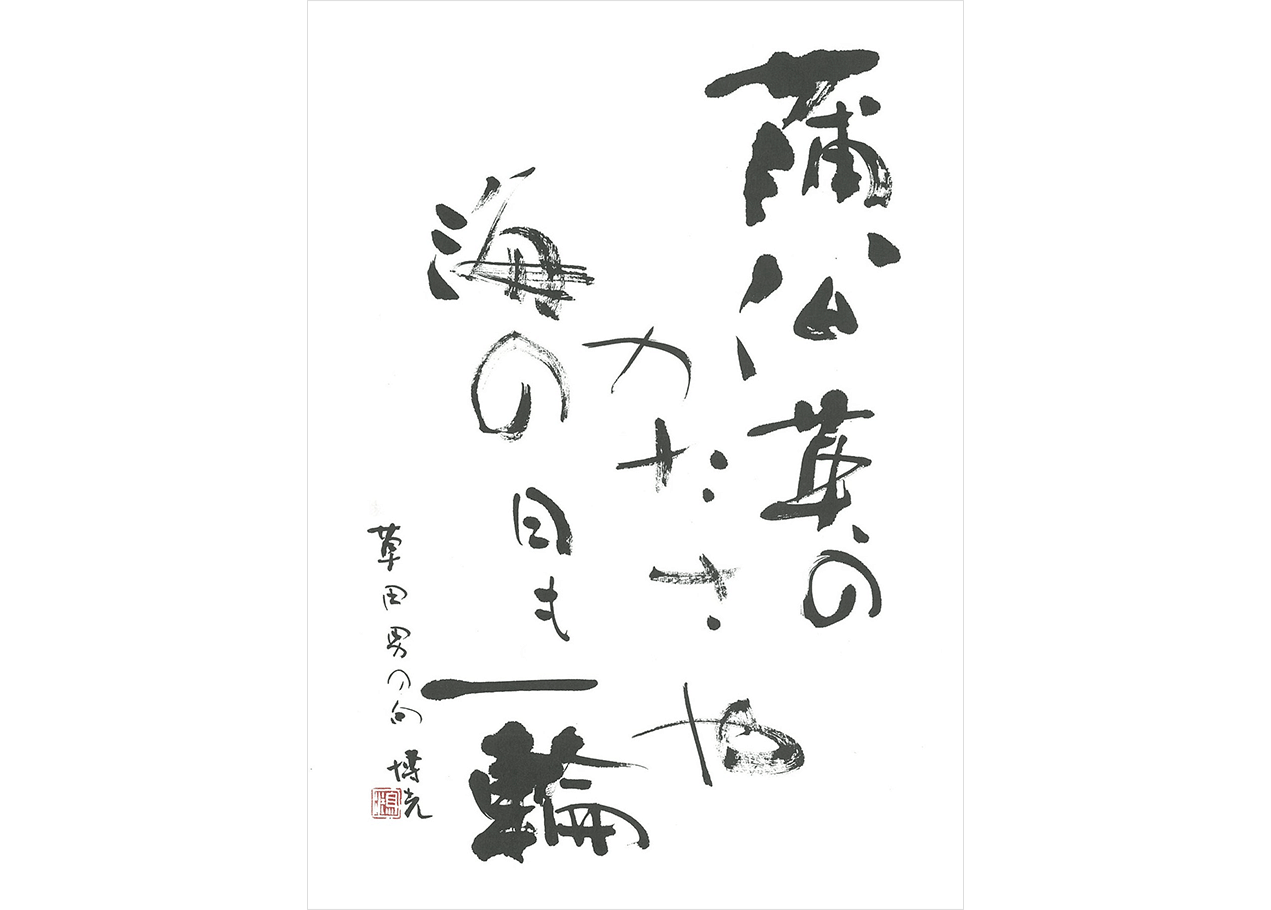 蒲公英の
かたさや
海の日も一輪
草田男の句